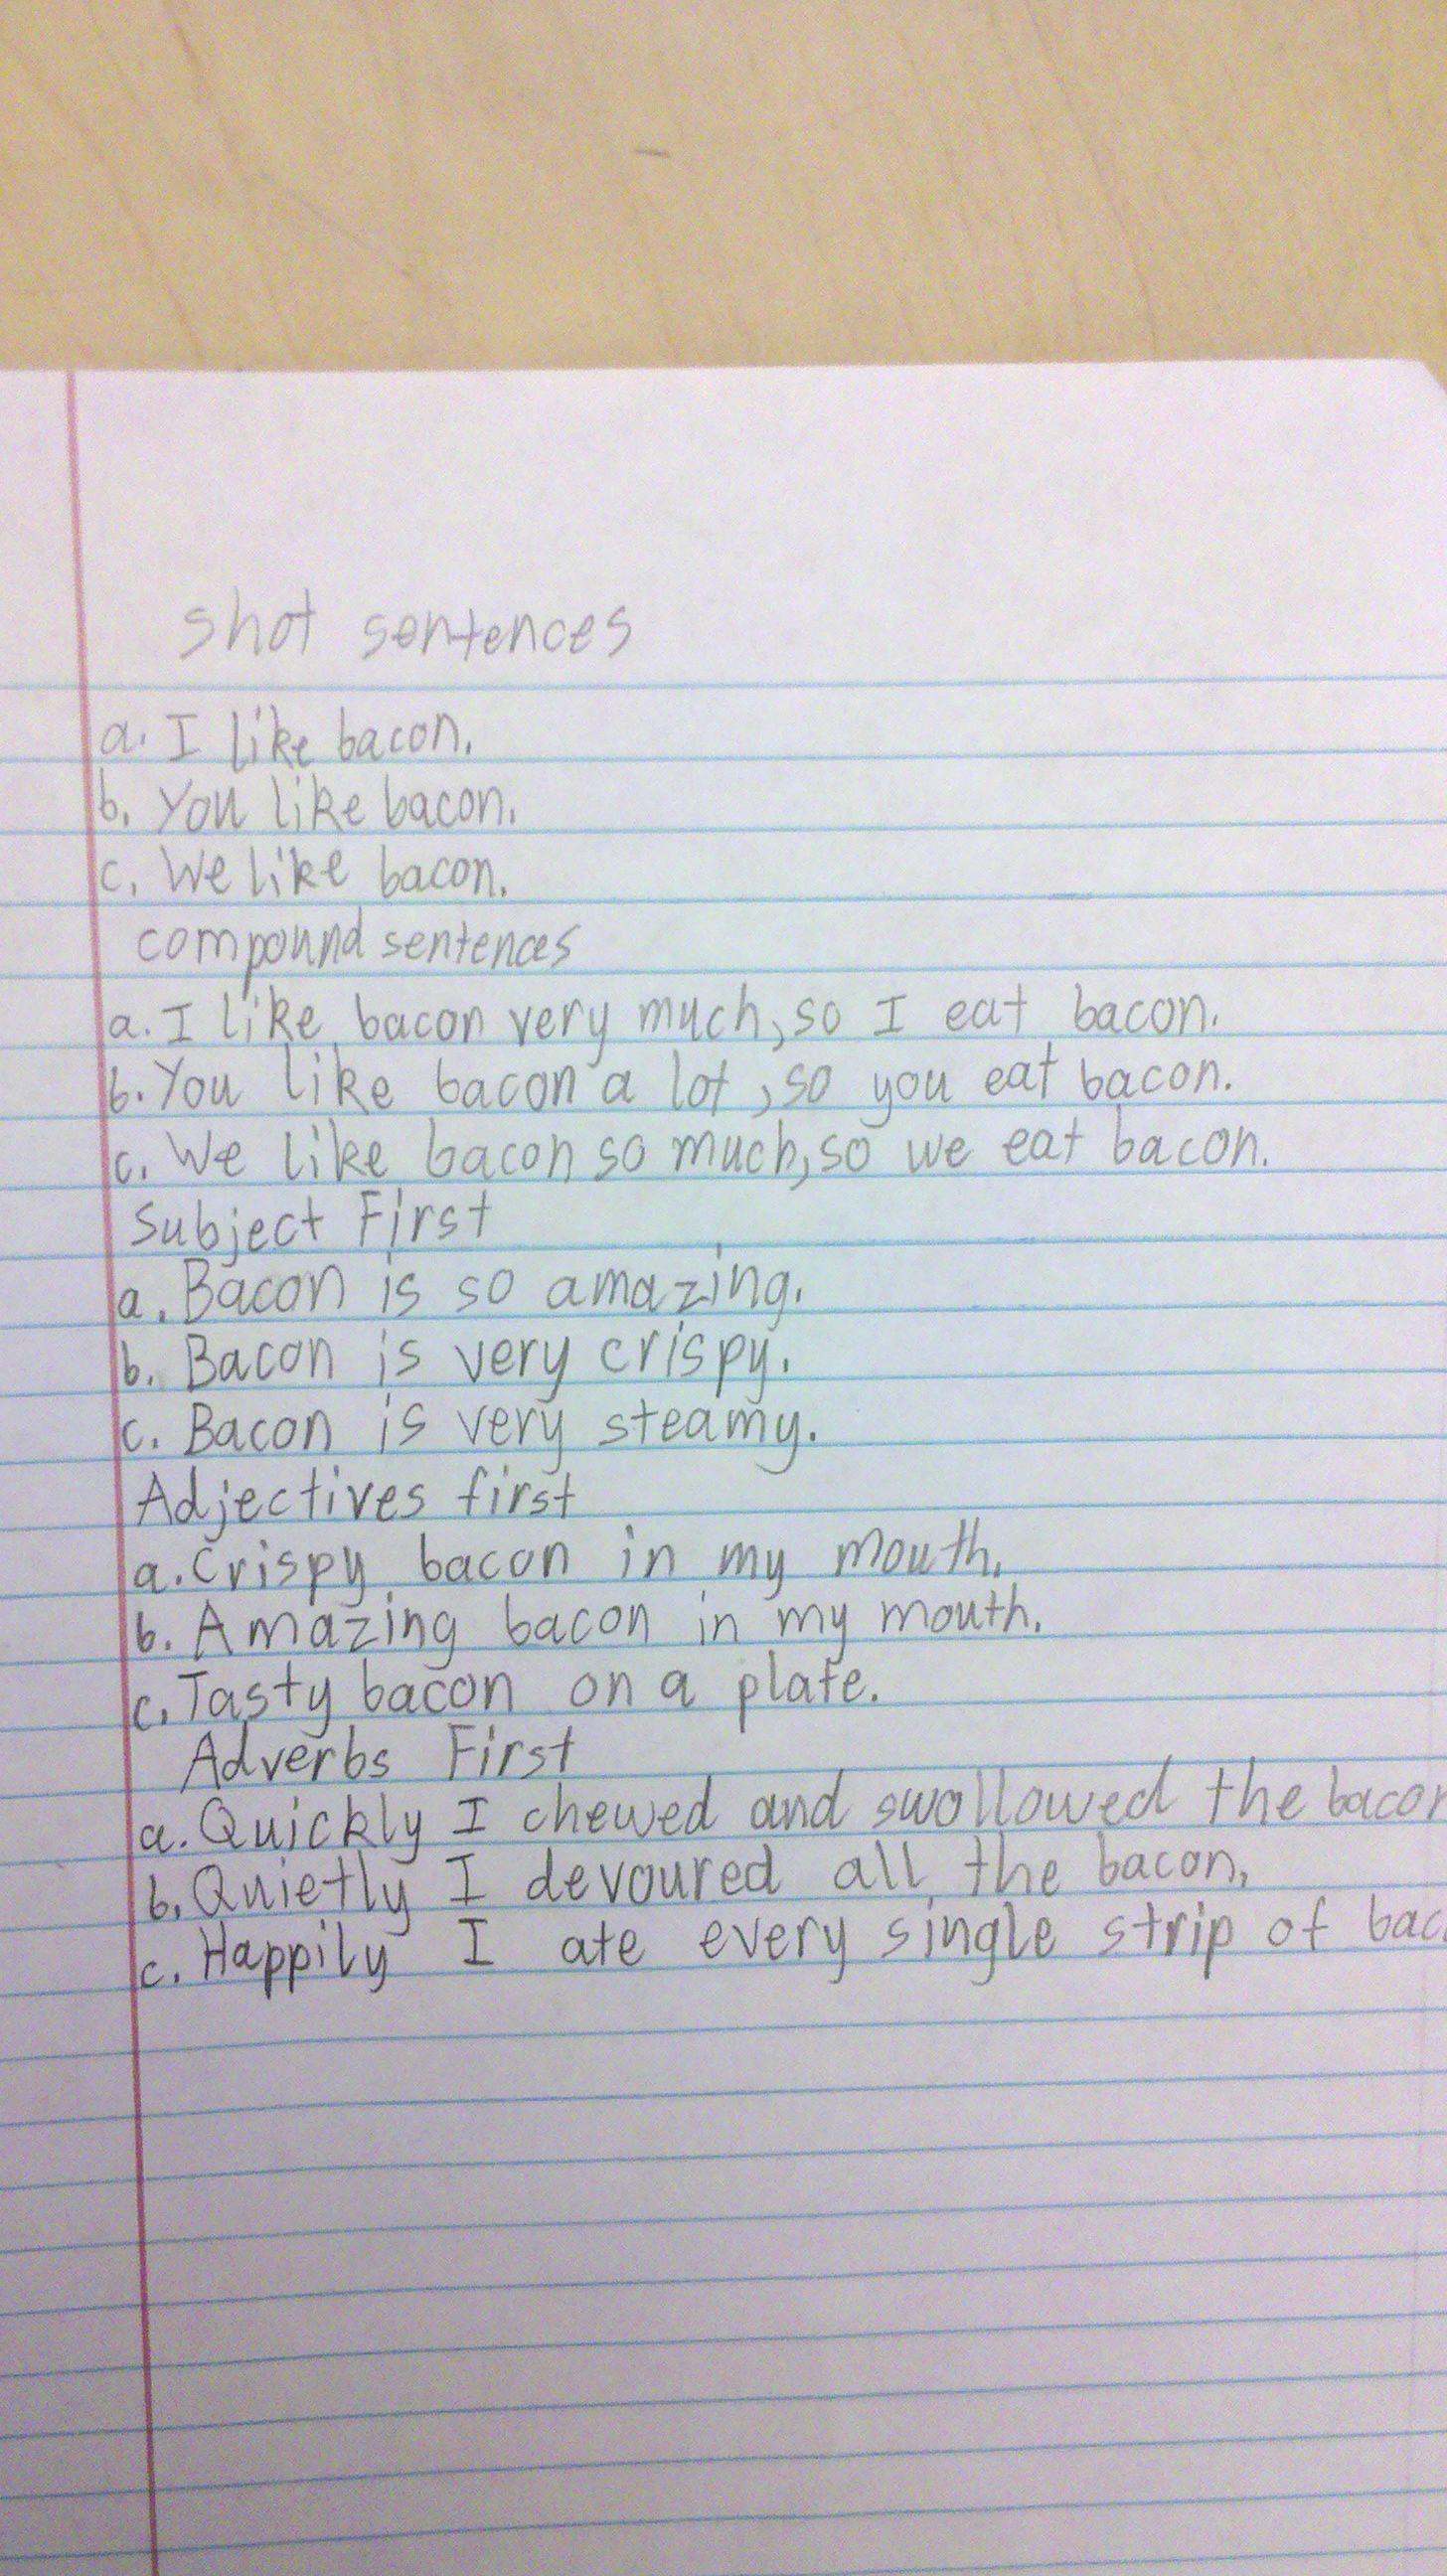 shot sentences
a. I like bacon.
b. You like bacon.
c. We like bacon.
compound sentences
a. I like bacon very much, so I eat bacon.
b. You like bacon a lot, so you eat bacon.
c. We like bacon so much, so we eat bacon.
Subject First
a. Bacon is so amazing.
b. Bacon is very crispy.
c. Bacon is very steamy.
Adjectives first
a. Crispy bacon in my mouth.
b. Amazing bacon in my mouth.
c. Tasty bacon on a plate.
Adverbs First
a. Quickly I chewed and swollowed the bacon
b. Quietly I devoured all the bacon.
c. Happily I ate every single strip of bac